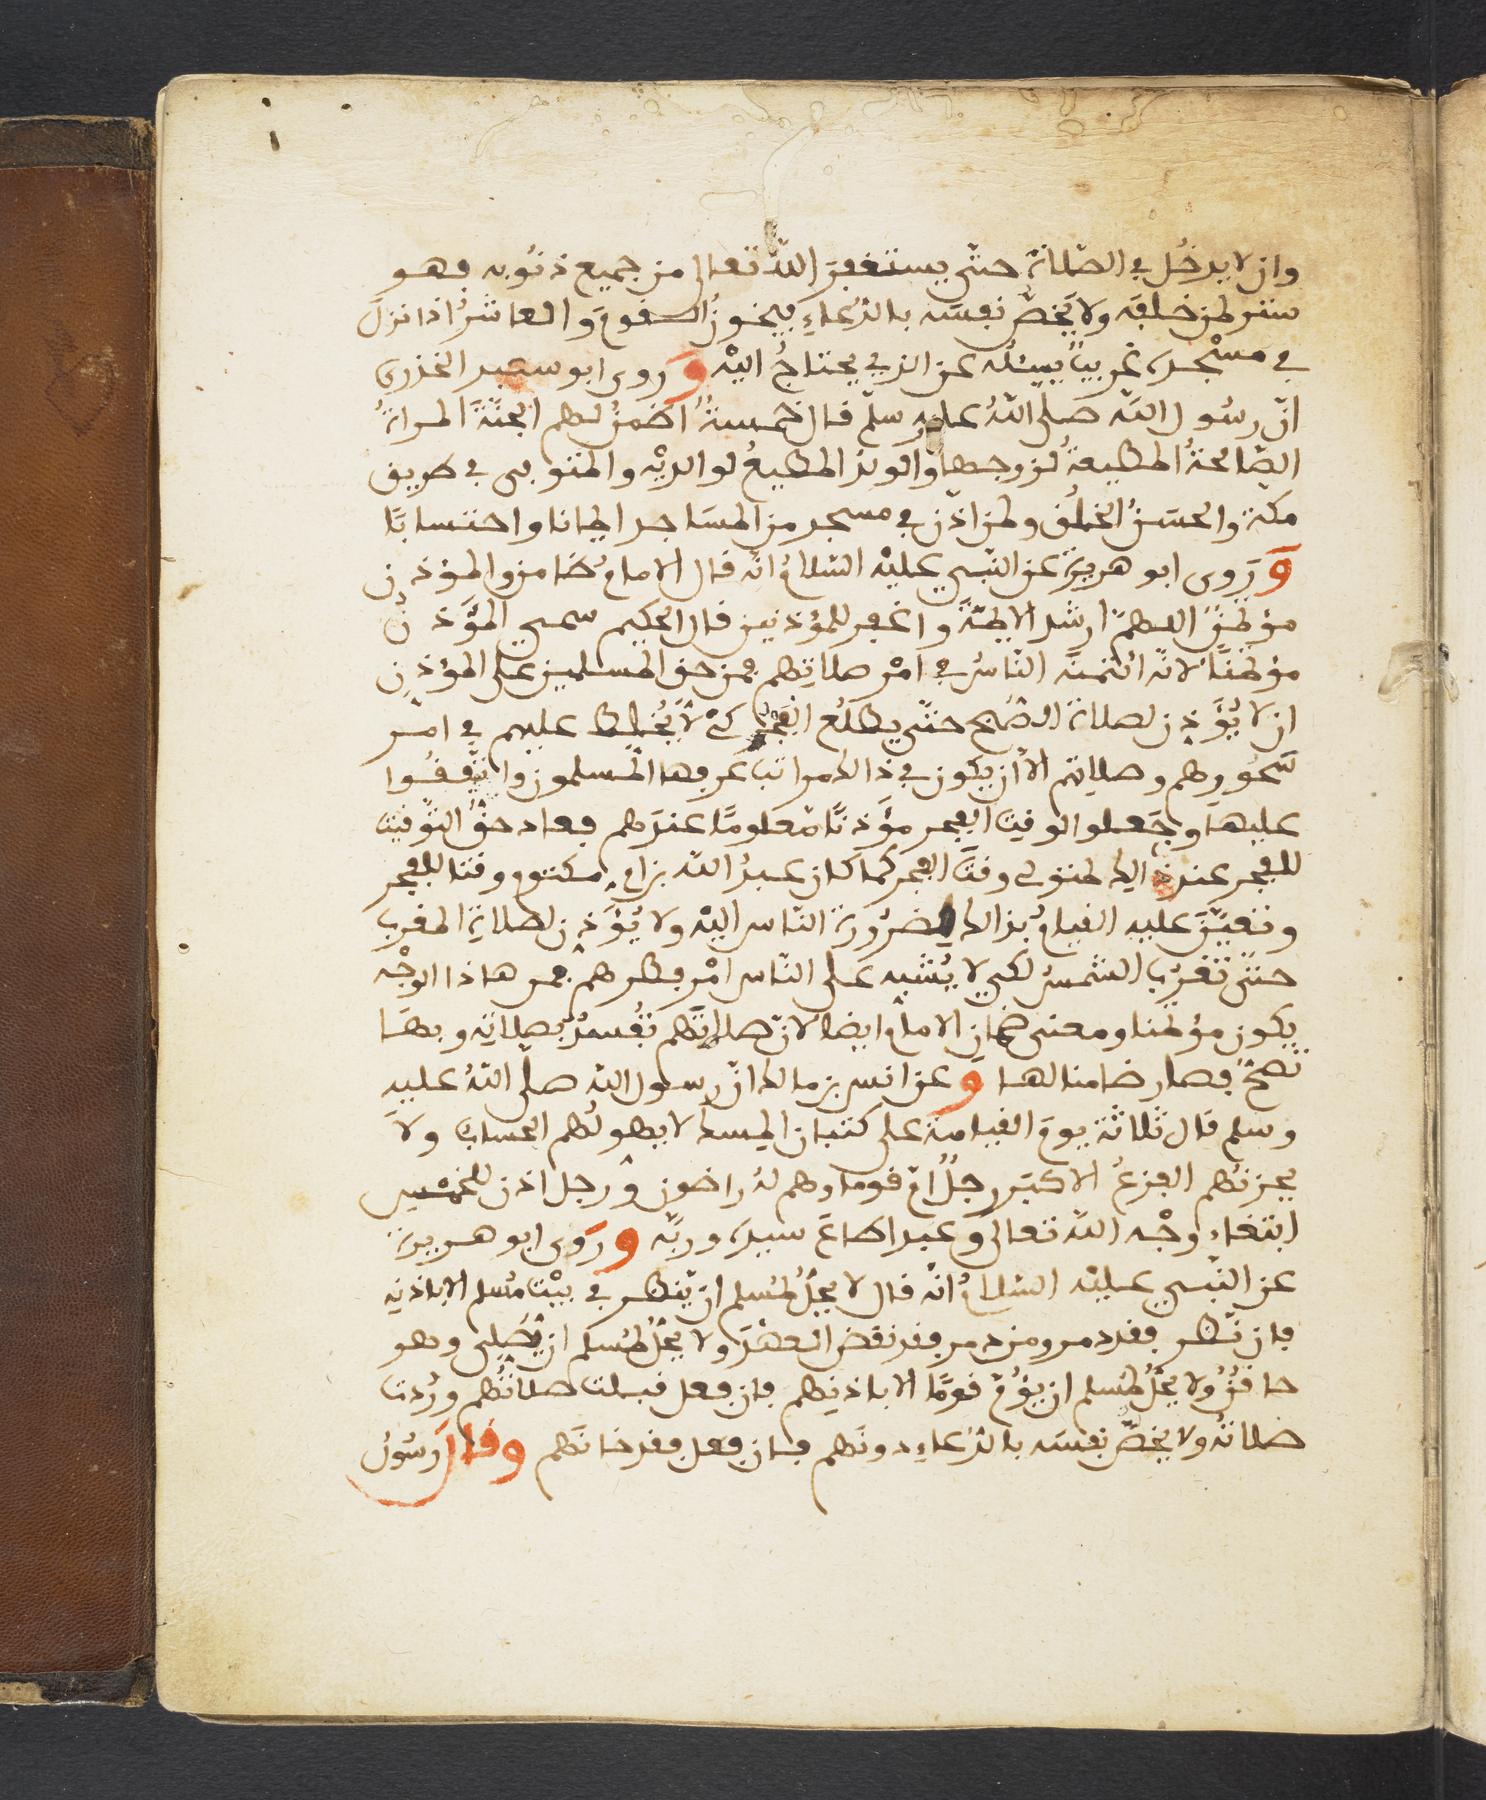 وان لا يدخُل في الصّلاة حتّى يستغفِرَ اللّه تعالى من جميع ذنُوبه فهو
شرط من خلفِه ولا يخصّ نفسَه بالدّعاءِ فيخونُ القومَ والعاشرُ اذا نزل
في مسْجده غريبٌ يسئله عن الذي يحتاجُ اليْه وَرَوى ابو سعيد الخذري
انّ رسُول اللّه صلى اللّهُ عليه وسلّم قال خمسةٌ اضمنُ لهم الجنّةَ المراةُ
الصّالحةُ المطيعةُ لزوجها والولدُ المطيعُ لوالديْه والمتوفى في طريق
مكّة والحسَنُ الخلُقِ ومن اذّن في مسجد من المسَاجد ايمانا واحتسابًا
وَرَوى ابو هريرة عن النّبي عليْه السّلامُ انّه قال الامامُ ضامن والموذّن
مؤتمنٌ اللهمّ ارشد الايمّةَ واغفر للمؤذنين قال الحكيم سمي المؤَذّنُ
مؤتمنًا لانّه ائتمنَه النّاسُ في امْر صلاتِهم فمن حق المسلمين على المؤذن
ان لا يُؤَذِن لصلاة الصُبح حتّى يطلُع الفجْر كىْ لا يُخلط عليهم في امْر
سَحُورِهم وصلاتِهم الاّ ان يكون في ذالك مراتب عرفها المسلمون واتّفقُوا
عليها وجَعلوا لوقت الفجر مؤَذنًا معلومًا عندهم فعاد حقُّ التوقيت
للفجر عند ذالك متوفى وقت الفجر كما كان عبدُ اللّه بن ام مكتوم وقتا للفجر
وتعيّنَ عليه القيامُ بذالك لضرُورة النّاس اليْه ولا يُؤَذن لصلاةِ المغرب
حتّى تغرُب الشّمسُ لكي لا يُشبه على النّاس امْر فطرهم فمن هاذا الوجْه
يكون مؤتمنا ومعنى ضمان الامام ايضا لانّ صلاتهم تفسدُ بصلاته وبها
تصحُّ فصار ضامنا لها وعن انس بن مالك انّ رسول اللّه صلّى اللّهُ عليه
وسلم قال ثلاثة يومَ القيامة على كثبان المسك لا يهولُهم الحسابُ ولا
يحزنُهم الفزعُ الاكبَر رجلٌ امّ قوما وهم له راضون ورجل اذن للخمْس
ابتغاء وجْه اللّه تعالى وعبد اطاعَ سيدَه وربّه ورَوى ابو هريرة
عن النّبي عليْه السّلامُ انّه قال لا يحلُّ لمُسلم ان يّنظر في بيْت مُسلم الا باذنِه
فان نّظر فقد دمر ومن دمر فقد نقض العهْدَ ولا يحلُّ لمُسلم ان يّصَلي وهو
حاقنٌ ولا يحلُّ لمُسلم ان يؤُمّ قومًا الا باذنِهم فان فعل قبلت صلاتُهم ورُدت
صلاتُه ولا يخصّ نفسَه بالدّعاءِ دونَهم فان فعل فقد خانَهم وقال رسُولُ